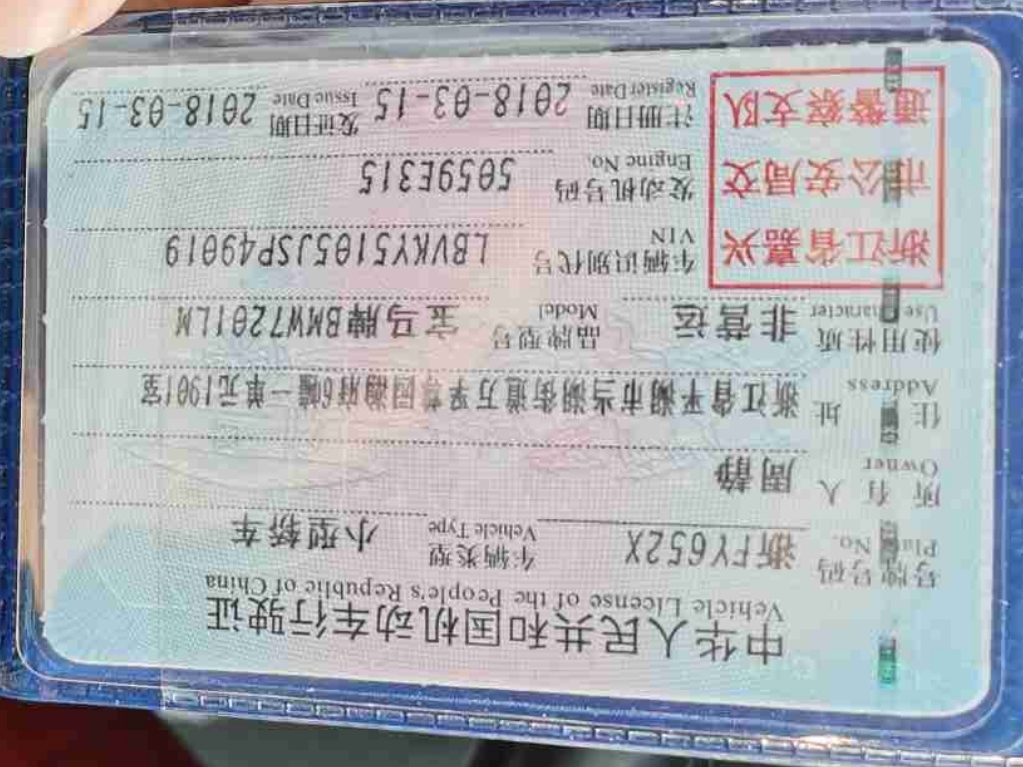 中华人民共和国机动车行驶证
Vehicle License of the People's Republic of China
号牌号码 浙FY652X 车辆类型 小型轿车
Plate No. Vehicle Type
所有人 周静
Owner
住址 浙江省平湖市当湖街道万孚尊园瀚府6幢一单元1901室
Address
使用性质 非营运 品牌型号 宝马牌BMW7201LM
Use Character Model
浙江省嘉兴 车辆识别代号 LBVKY5105JSP49019
VIN
市公安局交 发动机号码 5059E315
Engine No.
通警察支队 注册日期 2018-03-15 发证日期 2018-03-15
Register Date Issue Date